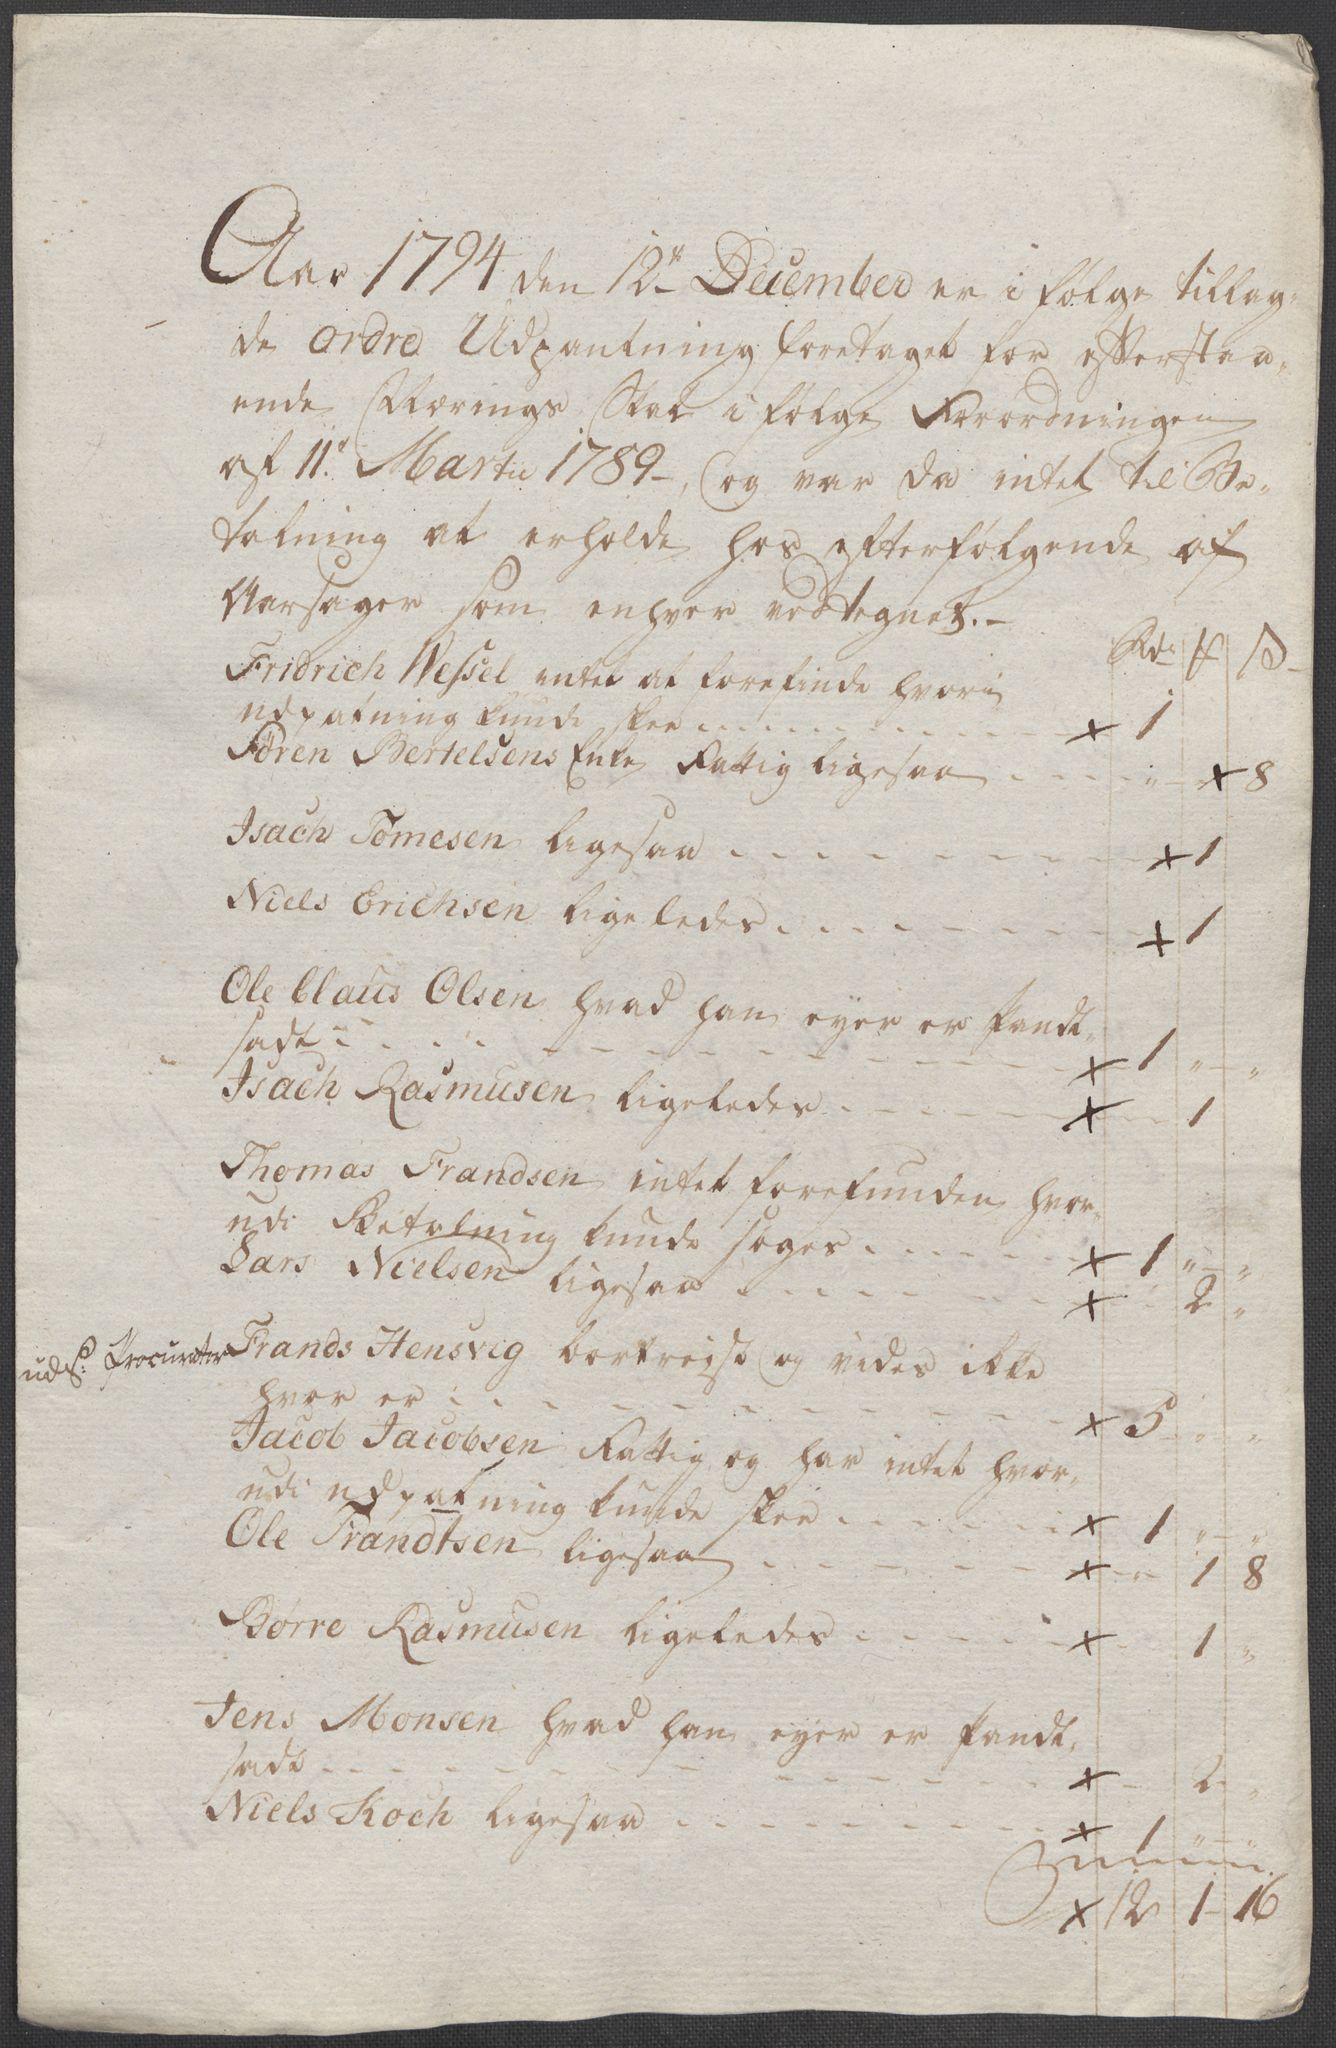 Aar 1794 den 12te December er i følge tillag-
de ordre Udpantning foretaget for efterstaa-
ende Nærings Skat i følge Forordningen
af 11te Martii 1789, og var da intet til Be-
talning at erholde hos efterfølgende af
Aarsager som enhver vedtegnet.-
Rdr ß
Fridrich Wessel intet at forefinde hvori
udpatning kunde skee . . . . x 1
Søren Bertelsens Enke Fattig ligesaa . . . . " x 8
Isach Tomesen ligesaa . . . . x 1
Niels Erichsen ligeledes . . . . x 1
Ole Claus Olsen hvad han eyer er Pandt-
sadt . . . . x 1 " "
Isach Rasmusen ligeledes . . . . x 1
Thomas Frandsen intet forefunden hvor-
udi Betalning kunde søges . . . . x 1 " "
Lars Nielsen ligesaa . . . . x 2 "
uds: Procurator Frands Hensvig bortreist og vides ikke
hvor er . . . . x 5 " "
Jacob Jacobsen Fattig og har intet hvor-
udi udpatning kunde skee . . . . x 1 " "
Ole Frandtsen ligesaa . . . . x " 1 8
Børre Rasmusen ligeledes . . . . x 1 "
Jens Monsen hvad han eyer er Pandt-
sadt . . . . x 2 "
Niels Koch ligesaa . . . . x 1 " "
x 12 1 16